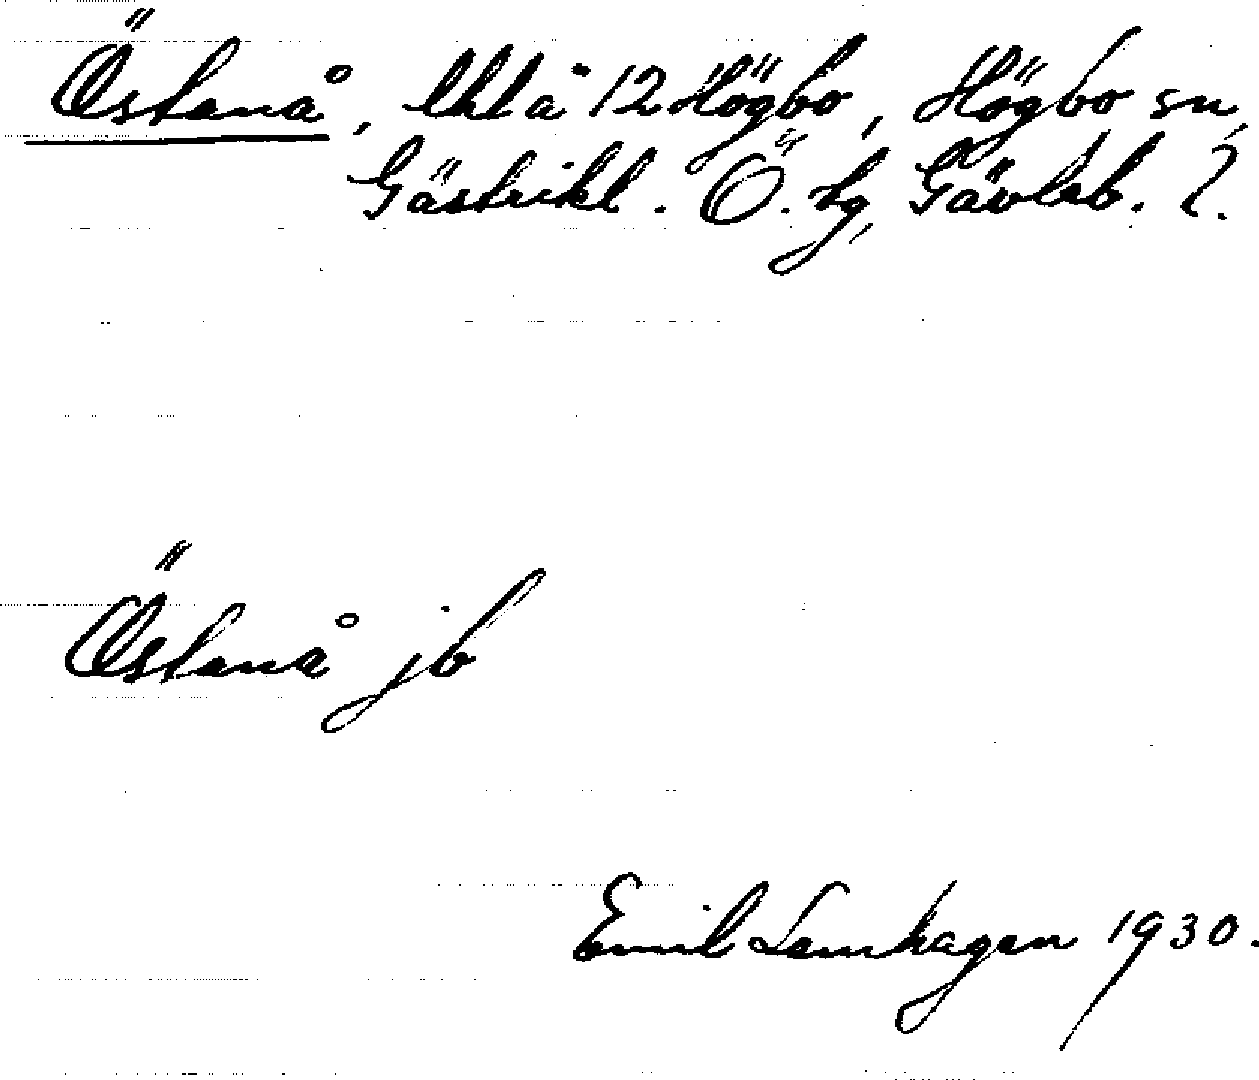 Östanå, lht å 12 Högbo, Högbo sn,
Gästrikl. Ö. tg, Gävleb. l.
Östanå jb
Emil Lemhagen 1930.